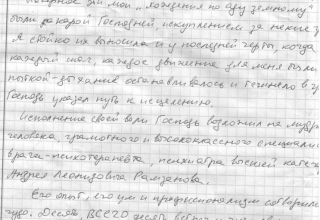 эти мои „хождения по аду земному"
были за карой Господней, искуплением за некие
Я стойко их выносила и у последней черты, когда
каждый шаг, каждое движение для меня были
пыткой - дыхание останавливалось и темнело в
Господь указал путь к исцелению.
Исполнение своей воли Господь возложил на мудро
человека, грамотного и высококлассного специали
врача-психотерапевта, психиатра высшей катего
Андрея Леонидовича Рамзанова.
Его опыт, его ум и профессионализм сотворили
чудо. Десять, ВСЕГО десять